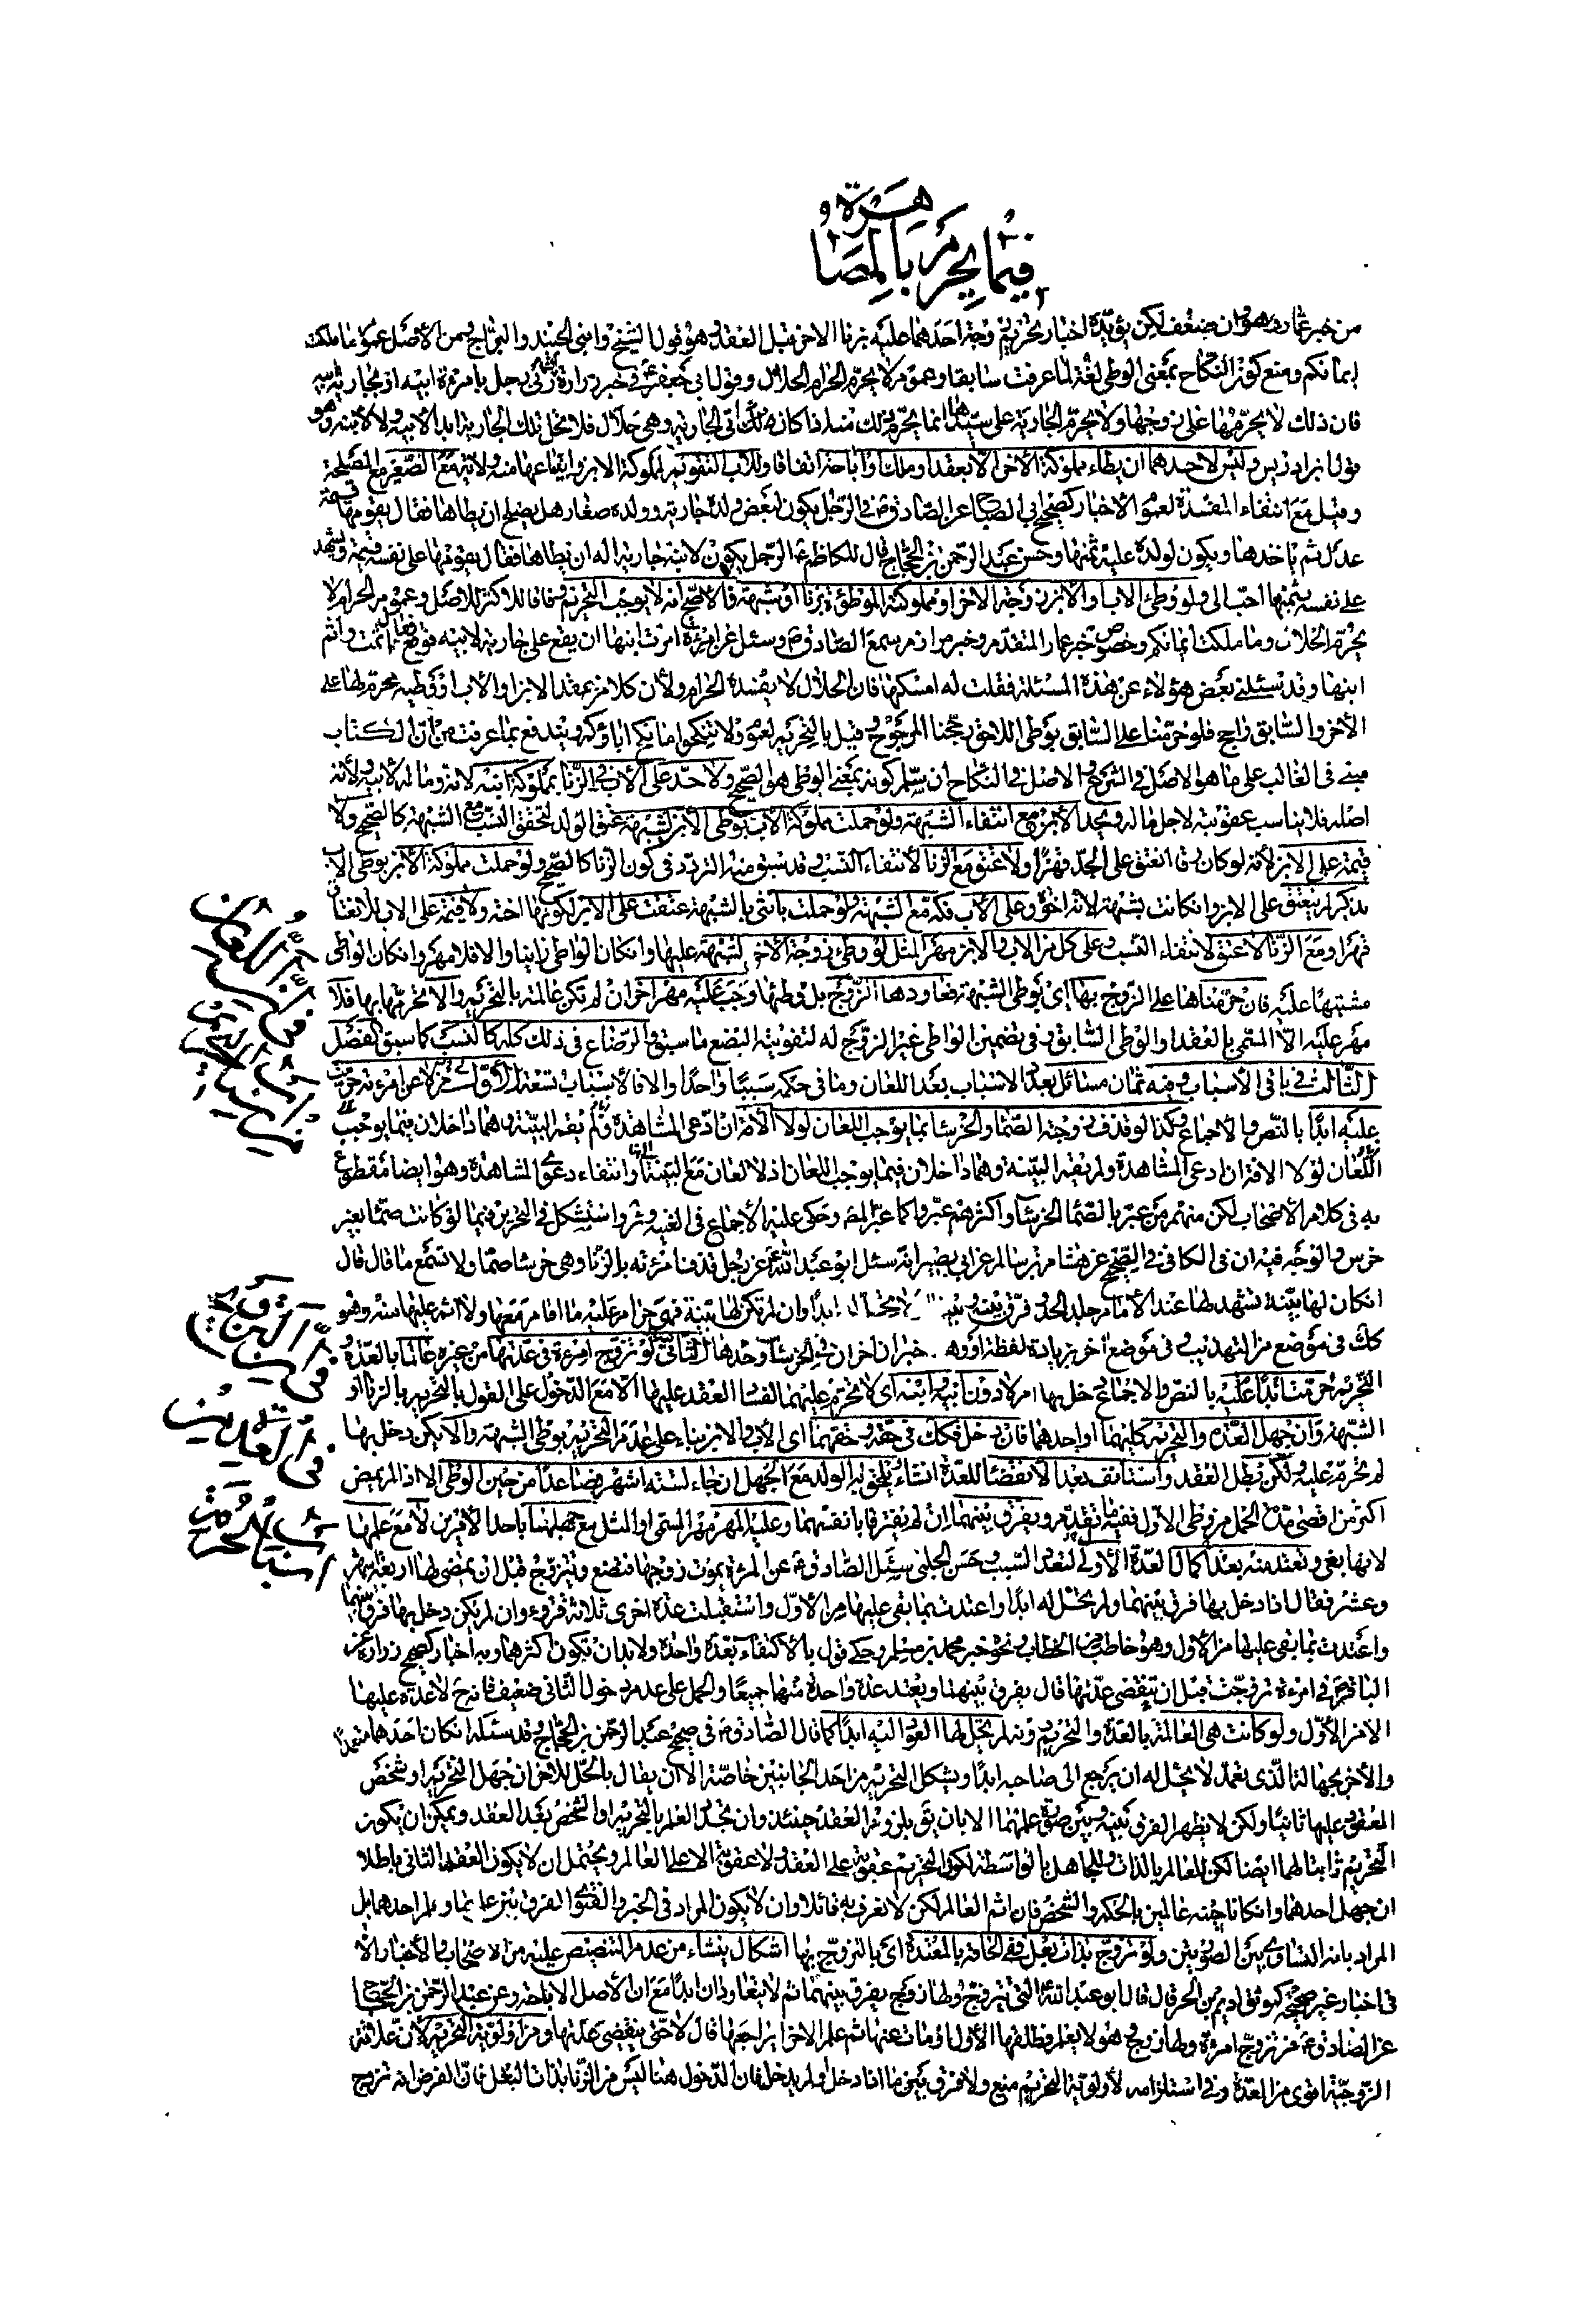 فيما يحرم بالمصاهرة
من خبر عمار وهو وان ضعف لكن يؤيده اخبار تحريم زوجة احدهما عليه بزنا الاخر قبل العقد وهو قول الشيخ وابني الجنيد والبراج ومن الاصل عموم ما ملكت
ايمانكم ومنع كون النكاح بمعنى الوطي لغة لما عرفت سابقا وعموم لا يحرم الحرام الحلال وقول ابي جعفر في خبر زرارة ان زنى رجل بامرءة ابيه او بجارية ابيه
فان ذلك لا يحرمها على زوجها ولا يحرم الجارية على سيدها انما يحرم ذلك منه اذا كان اتى الجارية وهي حلال فلا تحل تلك الجارية ابدا لابيه ولا لابنه وهو
قول ابن ادريس وليس لاحدهما ان يطاء مملوكة الاخر الا بعقد او ملك او اباحة اتفاقا وللاب التقويم لمملوكة الابن وابتياعها منه ولاية مع الصغر مع المصلحة
وقيل مع انتفاء المفسدة لعموم الاخبار كصحيح ابي الصباح عن الصادق في الرجل يكون لبعض ولده جارية وولده صغار هل يصلح ان يطاها فقال يقومها قيمة
عدل ثم ياخذها ويكون لولده عليه ثمنها وحسن عبد الرحمن بن الحجاج قال للكاظم الرجل يكون لابنه جارية اله ان يطاها فقال يقومها على نفسه قيمة ويشهد
على نفسه بثمنها احب الي ولو وطئ الاب او الابن زوجة الاخر او مملوكته الموطوءة بزنا او شبهة فالاصح انه لا يوجب التحريم وفاقا للاكثر للاصل وعموم الحرام لا
يحرم الحلال وما ملكت ايمانكم وخصوص خبر عمار المتقدم وخبر مرازم سمع الصادق وسئل عن امرءة امرت ابنها ان يقع على جارية لابيه فوقع فقال اثمت واثم
ابنها وقد سئلني بعض هؤلاء عن هذه المسئلة فقلت له امسكها فان الحلال لا يفسده الحرام ولان كلا من عقد الابن او الاب او وطيه محرم لها على
الاخر والسابق راجح فلو حرمنا على السابق بوطي اللاحق رجحنا المرجوح وقيل بالتحريم لعموم ولا تنكحوا ما نكح اباؤكم ويندفع بما عرفت من ان الكتاب
مبني في الغالب على ما هو الاصل في الشرع والاصل في النكاح ان سلم كونه بمعنى الوطي هو الصحيح ولا حد على الاب في الزنا بمملوكة ابنه لانه وماله لابيه ولانه
اصله فلا يناسب عقوبته لاجل ماله ويحد الابن مع انتفاء الشبهة ولو حملت مملوكة الاب بوطي الابن لشبهة عتق الولد لتحقق النسب مع الشبهة كالصحيح ولا
قيمة على الابن لانه لو كان رقا انعتق على الجد قهرا ولا عتق مع الزنا لانتفاء النسب وقد سبق منه التردد في كون الزنا كالصحيح ولو حملت مملوكة الابن بوطي الاب
بذكر لم ينعتق على الابن وان كانت بشبهة لانه اخوه وعلى الاب فكه مع الشبهة ولو حملت بانثى بالشبهة عتقت على الابن لكونها اخته ولا قيمة على الاب للانعتاق
قهرا ومع الزنا لا عتق لانتفاء النسب وعلى كل من الاب والابن مهر المثل لو وطئ زوجة الاخر لشبهة عليها وان كان الواطي زانيا والا فلا مهر وان كان الواطي
مشتبها عليه فان حرمناها على الزوج بها اي بوطي الشبهة فعاودها الزوج بل وطئها وجب عليه مهر اخر ان لم تكن عالمة بالتحريم والا نحرمها بها فلا
مهر عليه الا المسمى بالعقد او الوطي السابق وفي تضمين الواطي غير الزوج له لتفويته البضع ما سبق والرضاع في ذلك كله كالنسب كما سبق الفصل
الثالث في باقي الاسباب وفيه ثمان مسائل بعدد الاسباب بعد اللعان وما في حكمه سببا واحدا والا فالاسباب تسعة الاولى من لاعن امرءته حرمت
عليه ابدا بالنص والاجماع وكذا لو قذف زوجته الصماء والخرساء بما يوجب اللعان لولا الافة ان ادعى المشاهدة ولم يقم البينة وهما داخلان فيما يوجب
اللعان لولا الافة ان ادعى المشاهدة ولم يقم البينة وهما داخلان فيما يوجب اللعان اذ لا لعان مع البينة او انتفاء دعوى المشاهدة وهو ايضا مقطوع
به في كلام الاصحاب لكن منهم من عبر بالصماء الخرساء واكثرهم عبروا كما عبر المص وحكي عليه الاجماع في الغنية وئر واستشكل في التحرير فيما لو كانت صماء بغير
خرس والوجه فيه ان في الكافي والصحيح عن هشام بن سالم عن ابي بصير انه سئل ابو عبد الله عن رجل قذف امرءته بالزنا وهي خرساء صماء ولا تسمع ما قال قال
ان كان لها بينة تشهد لها عند الامام جلد الحد وفرق بينه وبينها لا تحل له ابدا وان لم تكن لها بينة فهي حرام عليه ما اقام معها ولا اثم عليها منه وهو
كك في موضع من التهذيب وفي موضع اخر بزيادة لفظة او وهـ خبران اخران في الخرساء وحدها الثانية لو تزوج امرءة في عدتها من غيره عالما بالعدة و
التحريم حرمت ابدا عليه بالنص والاجماع دخل بها ام لا دون ابيه وابنه اي لا تحرم عليهما لفساد العقد عليها الا مع الدخول على القول بالتحريم بالزنا او
الشبهة وان جهل العدة والتحريم كليهما او احدهما فان دخل فكك في حقه وحقهما اي الاب والابن بناء على عدم التحريم بوطي الشبهة والا يكن دخل بها
لم تحرم عليه ولكن بطل العقد واستانف بعد الانقضاء للعدة ان شاء ويلحق به الولد مع الجهل ان جاء لستة اشهر فصاعدا من حين الوطي الا اذا لم يمض
اكثر من اقصى مدة الحمل من وطي الاول ففيه ما تقدم ويفرق بينهما ان لم يفترقا بانفسهما وعليه المهر مهر المسمى او المثل مع جهلها باحد الامرين لا مع علمها
لانها بغي وتعتد منه بعد اكمال العدة الاولى لتعدد السبب وحسن الحلبي سئل الصادق عن المرءة يموت زوجها فتضع وتتزوج قبل ان يمضي لها اربعة اشهر
وعشر فقال اذا دخل بها فرق بينهما ولم تحل له ابدا واعتدت بما بقي عليها من الاول واستقبلت عدة اخرى ثلاثة قروء وان لم يكن دخل بها فرق بينهما
واعتدت بما بقي عليها من الاول وهو خاطب من الخطاب ونحو خبر محمد بن مسلم وحكي قول بالاكتفاء بعدة واحدة ولا بد ان تكون اكثرهما وبه اخبار كصحيح زرارة عن
الباقر في امرءة تزوجت قبل ان تنقضي عدتها قال يفرق بينهما وتعتد عدة واحدة منهما جميعا والحمل على عدم دخول الثاني ضعيف فانه ح لا عدة عليها
الا من الاول ولو كانت هي العالمة بالعدة والتحريم دونه لم يحل لها العود اليه ابدا كما قال الصادق في صحيح عبد الرحمن بن الحجاج وقد سئله ان كان احدهما متعمدا
والاخر بجهالة الذي تعمد لا يحل له ان يرجع الى صاحبه ابدا ويشكل التحريم من احد الجانبين خاصة الا ان يقال بالحل للاخر ان جهل التحريم او شخص
المعقود عليها ثانيا ولكن لا يظهر الفرق بينه وبين صورة علمهما الا بان يق بلزوم العقد حينئذ وان تجدد العلم بالتحريم او الشخص بعد العقد ويمكن ان يكون
التحريم ثابتا لهما ايضا لكن للعالم بالذات وللجاهل بالواسطة لكون التحريم عقوبة على العقد ولا عقوبة الا على العالم ويحتمل ان لا يكون العقد الثاني باطلا
ان جهل احدهما وان كانا حينه عالمين بالحكم والشخص فان اثم العالم لكن لا نعرف به قائلا وان لا يكون المراد في الخبر والفتوى الفرق بين علمهما وعلم احدهما بل
المراد بانه التساوي بين الصورتين ولو تزوج بذات بعل ففي الحاقه بالمعتدة اي بالتزوج بها اشكال ينشاء من عدم التنصيص عليه من الاصحاب والاخبار الا
في اخبار غير صحيحة كموثق اديم بن الحر قال قال ابو عبد الله التي تتزوج ولها زوج يفرق بينهما ثم لا يتعاودان ابدا مع ان الاصل الاباحة وعن عبد الرحمن بن الحجاج
عن الصادق من تزوج امرءة ولها زوج وهو لا يعلم فطلقها الاول او مات عنها ثم علم الاخر ايراجعها قال لا حتى ينقضي عدتها ومن اولوية التحريم لان علاقة
الزوجية اقوى من العدة وفي استلزامه لاولوية التحريم منع ولا فرق بين ما اذا دخل او لم يدخل فان الدخول هنا ليس من الزنا بذات البعل فان الفرض انه تزوج